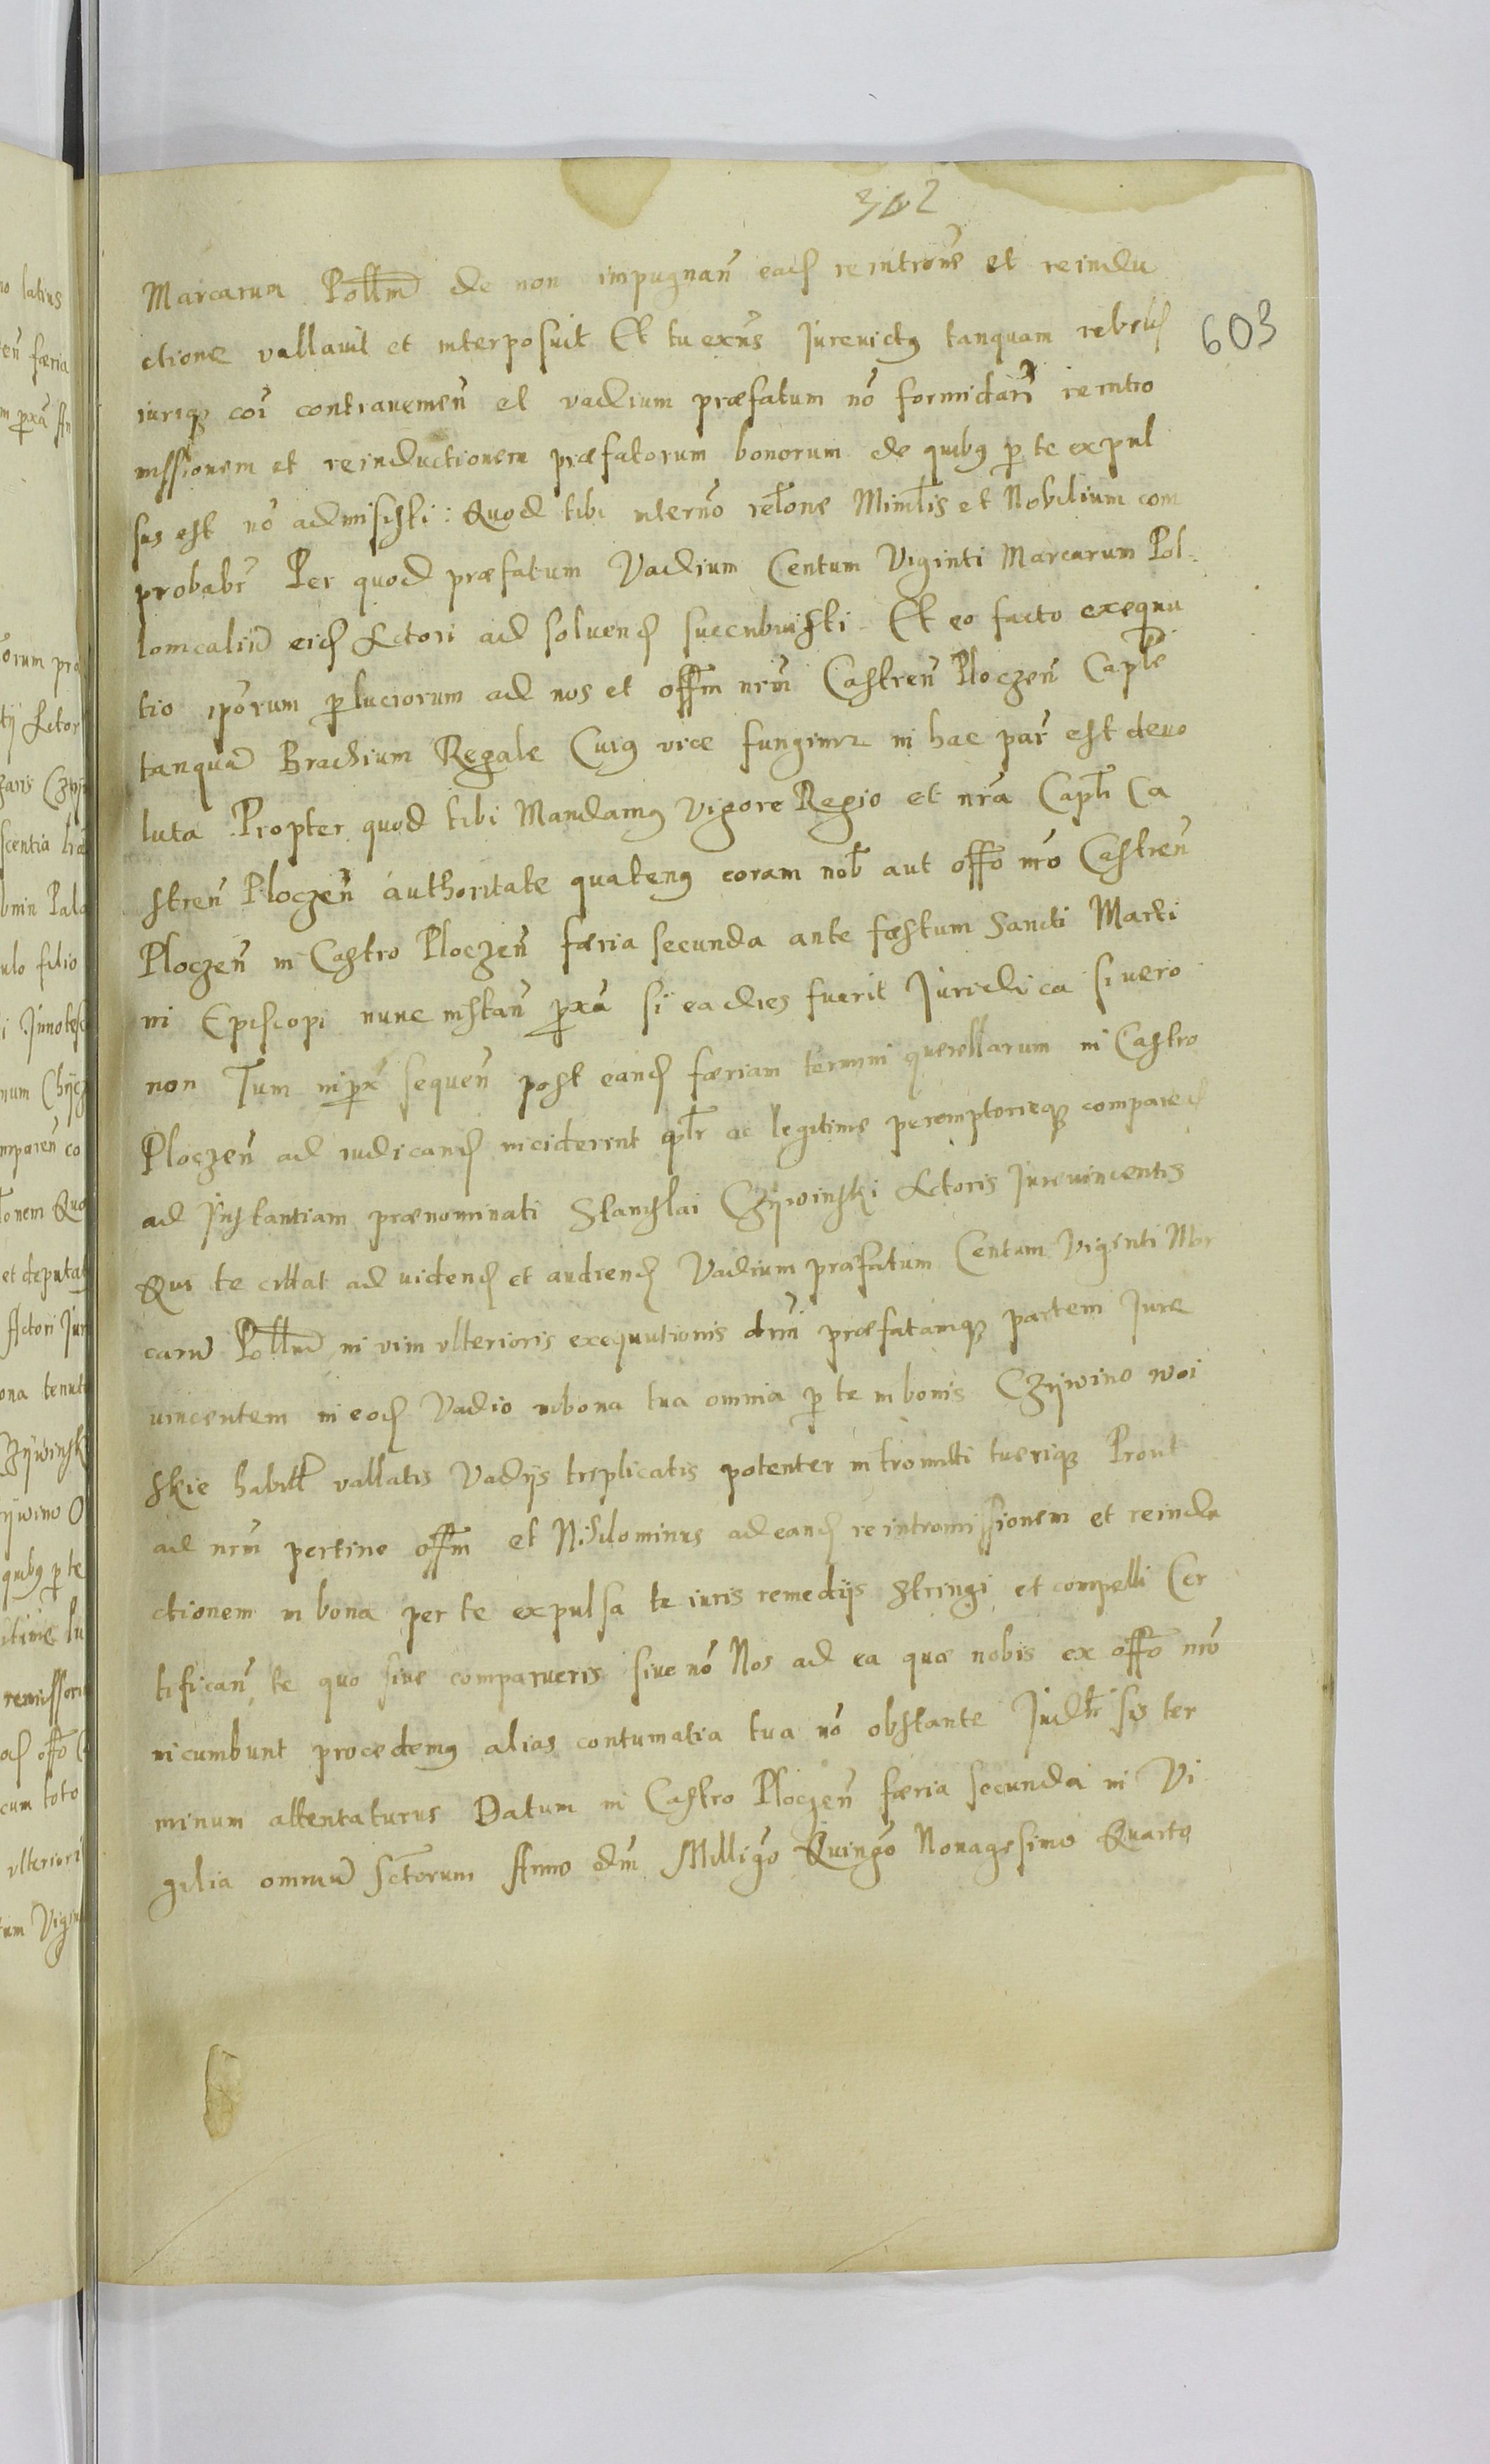 302
603
Marcarum Pollm̃ de non impugnañ eađ reintrõne et reindu
ctione vallauit et interposuit Et tu exñs Jureuictꝰ tanquam rebelꝭ
iuriqꝫ coĩ contraueneñ et vadium præfatum nõ formidañ reintro
missionem et reinductionem præfatorum bonorum de quibꝰ ꝑ te expul
sus est nõ admisisti: Quod tibi interño relõne Minĩlis et Nobilium com
probabr̃ Per quod præfatum Vadium Centum Viginti Marcarum Pol-
lonicaliũ eiđ Actori ad soluenđ succubuisti Et eo facto exequu
tio ip̃orum ꝑluciorum ad nos et off̃m nrũm Castreñ Ploczeñ Capl̃e
tanquã Brachium Regale Cuiꝰ vice fungimr̃ in hac par̃ est deuo
luta Propter quod tibi Mandamꝰ Vigore Regio et nrã Capl̃i Ca
streñ Ploczeñ authoritate quatenꝰ coram nob̃ aut off̃o nrõ Castreñ
Ploczeñ in Castro Ploczeñ færia secunda ante fæstum Sancti Marti
ni Episcopi nunc instañ ꝓxã si ea dies fuerit Juridica si uero
non Tum in ꝓx̃ sequeñ post eanđ færiam termini querellarum in Castro
Ploczeñ ad iudicanđ inciderint pl̃r ac legitime peremptorieqꝫ compareas
ad Instantiam prænominati Stanislai Czÿwinski Actoris Jureuincentis
Qui te citat ad uidenđ et audienđ Vadium præfatum Centum Viginti Mar
carũ Pollm̃ in vim vlterioris exequutionis drĩm præfatamqꝫ partem Jure
uincentem in eođ Vadio in bona tua omnia ꝑ te in bonis Czÿwino woi
skie habil̃r vallatis Vadÿs triplicatis potenter intromitti tueriqꝫ Prout
ad nrũm pertine off̃m et Nihilominus ad eanđ reintromissionem et reindu
ctionem in bona per te expulsa te iuris remedÿs stringi et compelli Cer
tificañ te quo siue comparueris siue nõ Nos ad ea quæ nobis ex off̃o nrõ
incumbunt procedemꝰ alias contumatia tua nõ obstante Jud̃r sis ter
minum attentaturus Datum in Castro Ploczeñ færia secunda in Vi
gilia omniũ Sctõrum Anno dñi Milligõ Quingõ Nonagesimo Quarto